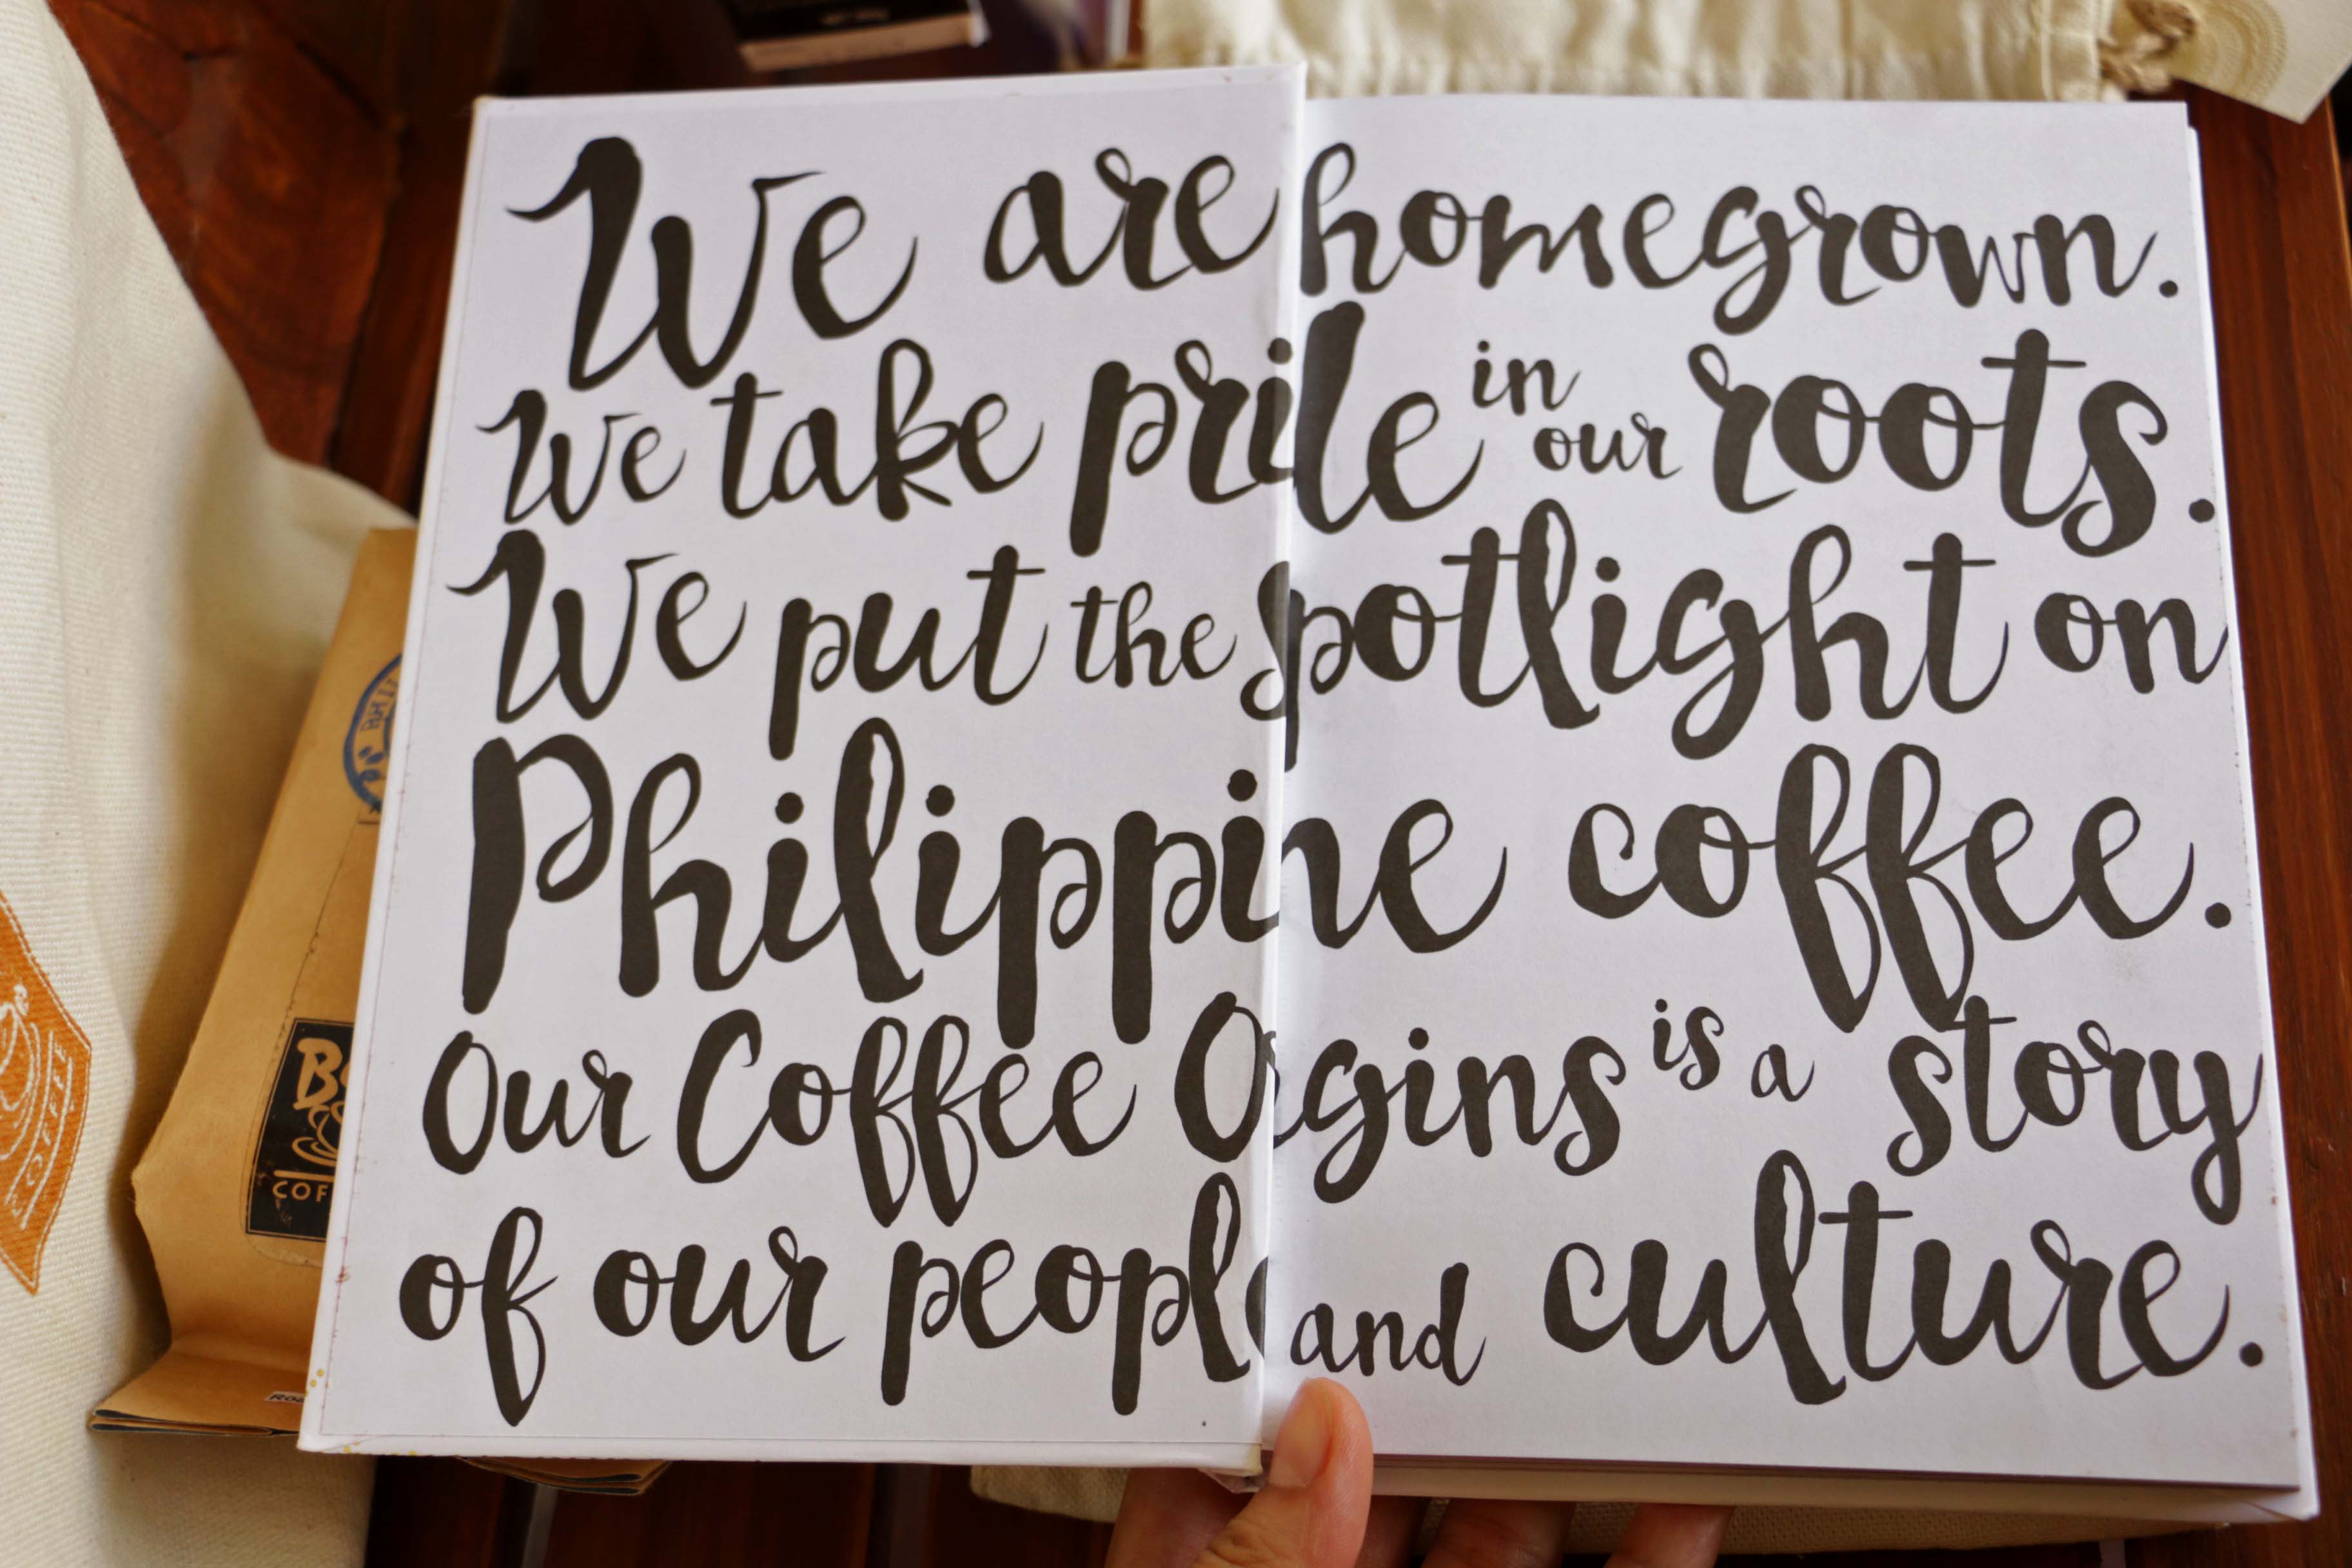 We are homegrown.
We take pride in our roots.
We put the spotlight on
Philippine coffee.
Our Coffee Origins is a story
of our people and culture.
COFFEE